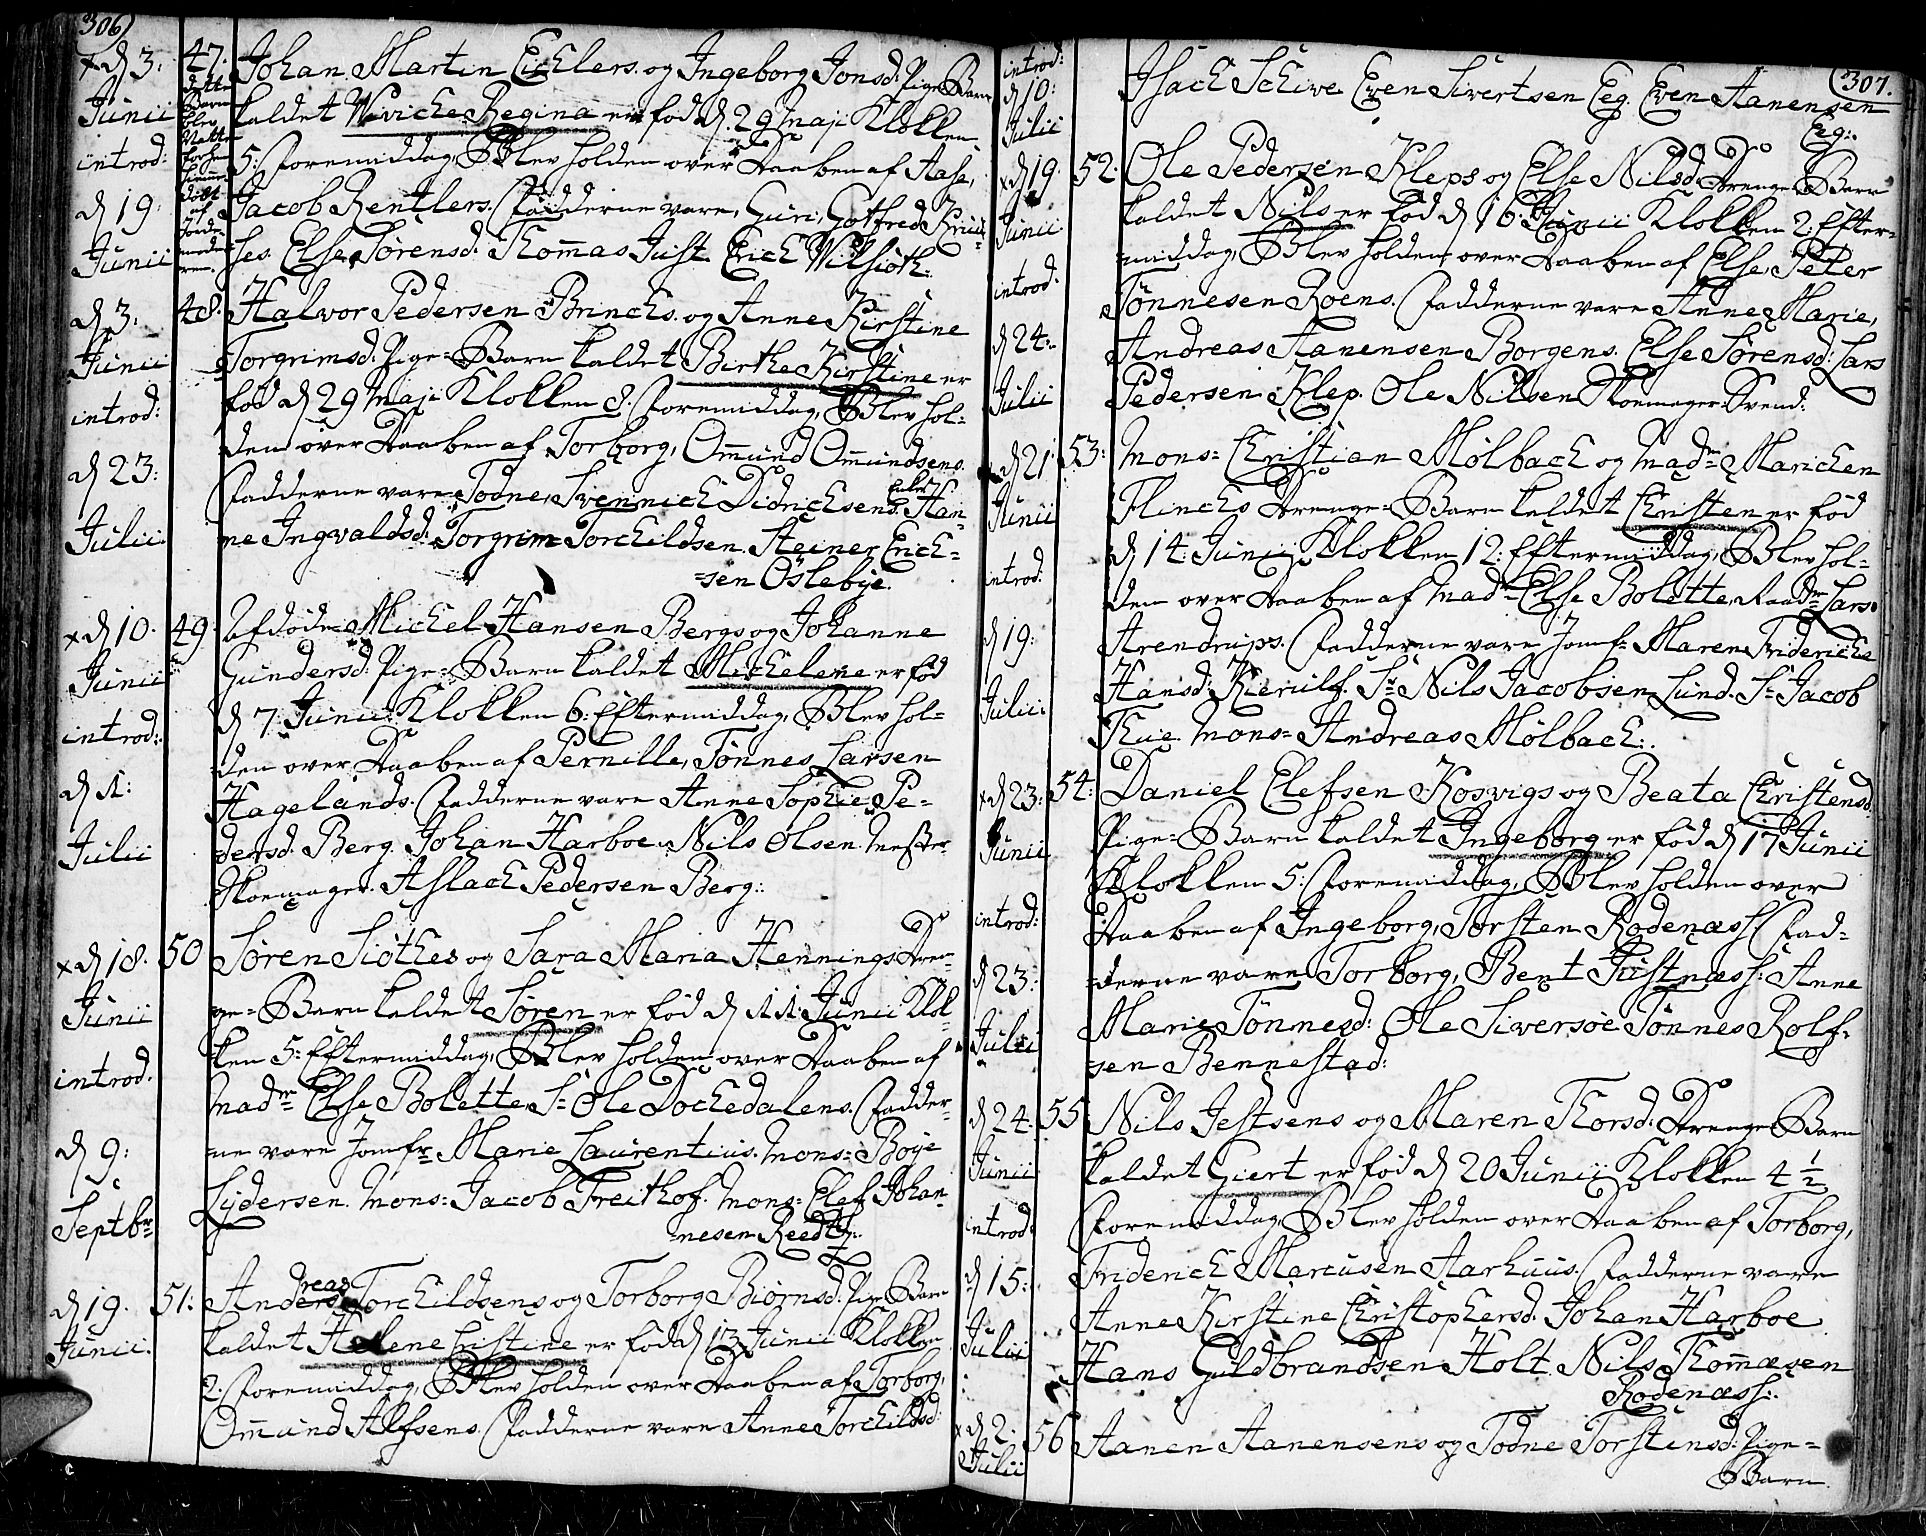 306)
x d 3. Junii introd: d 19. Junii
47. dette Barn blev
Johan Martin Eichlers og Ingeborg Jonsd: Pige-Barn
kaldet Wiviche Regina er fød d. 29 Maji Klokken
5: Formiddag, Blev holden over Daaben af Aase,
Jacob Rentlers. Fadderne vare, Guri, Gotfred Kruu-
ses. Else Sørensd: Thom̄as Just Erich Wilsioth:
d 3. Junii introd: d 23: Julii
48. Halvor Pedersen Brinchs og Anne Kirstine
Torgrimsd: Pige-Barn kaldet Birthe Kirstine er
fød d 29 Maji Klokken 8. Foremiddag, Blev hol-
den over Daaben af Torborg, Om̄und Om̄undsens.
Fadderne vare Todne, Svennich Didrichsens Enke Han-
ne Ingvaldsd: Torgrim Torchildsen. Steiner Erich-
-sen Oslebye.
x d 10. Junii introd: d 1: Julii
49. Afdøde Michel Hansen Bergs og Johanne
Gundersd: Pige-Barn kaldet Michelene er fød
d 7. Junii Klokken 6: Eftermiddag, Blev hol-
den over Daaben af Pernille, Tønnes Larsen
Hagelands. Fadderne vare Anne Sophie Pe-
dersd: Berg. Johan Harboe. Nils Olsen Mester
Skoemager. Aslach Pedersen Berg:
x d 18. Junii introd. d 9: Septbr
50 Søren Siøthes og Sara Maria Hennings Dren-
ge-Barn kaldet Søren er fød d 11. Junii Klok-
ken 5: Eftermiddag, Blev holden over Daaben af
Madme Else Bolette, Sr Ole Dochedalens. Fadder-
ne vare Jomfr Marie Laurentius. Mons= Boye
Lydersen. Mons= Jacob Freithof. Mons= Elef Johan-
nesen Reedtz:
d 19. Junii.
51: Andreas Torchildsens og Torborg Biørnsd: Pige-Barn
kaldet Helene Cristine er fød d 13 Junii Klokken
2. Foremiddag, Blev holden over Daaben af Torborg,
Om̄und Alfsens. Fadderne vare Anne Torchildsd:
307.
introd: d 10: Julii
Isach Schive Even Sivertsen Eeg. Even Aanensen
Eg:
x d 19. Junii introd: d 24: Julii
52: Ole Pedersen Kleps og Else Nilsd: Drenge-Barn
kaldet Nils er fød d 16 Junii Klokken 2. Efter-
-middag, Blev holden over Daaben af Else, Peter
Tønnesen Roens. Fadderne vare Anne Marie,
Andreas Aanensen Borgens. Else Sørensd: Lars
Pedersen Klep. Ole Nilsen Skoemager-Svend:
d 21 Junii introd: d 19: Julii
53: Mons= Christian Mølbach og Madme Marichen
Flinchs Drenge-Barn kaldet Christen er fød
d 14. Junii Klokken 12: Eftermiddag, Blev hol-
den over Daaben af Madme Else Bolette, Lars
Arendrups. Fadderne vare Jomf= Maren Friderichs
Hansd: Kierulf. Sr Nils Jacobsen Lund. Sr Jacob
Thue. Mons= Andreas Mølbach:
x d 23: Junii introd: d 23: Julii
54: Daniel Elefsen Kosvigs og Beata Christensd:
Pige-Barn kaldet Ingeborg er fød d 17 Junii
Klokken 5: Foremiddag, Blev holden over
Daaben af Ingeborg, Torsten Rodenæss. Fad-
-derne vare Torborg, Bent Justnæss: Anne
Marie Tønnesd: Ole Siversøe Tønnes Rolf-
sen Bennestad:
d 24. Junii introd: d 15: Julii
55 Nils Jestsens og Maren Thorsd: Drenge-Barn
kaldet Giert er fød d 20 Junii Klokken 4 ½
Foremiddag, Blev holden over Daaben af Torborg,
Friderich Marcusen Aarhuus. Fadderne vare
Anne Kirstine Christophersd: Johan Harboe
Hans Guldbrandsen Holt. Nils Thom̄æsen
Rodenæss:
x d 2. Julii
56 Aanen Aanensens og Todne Torstensd: Pige-
Barn